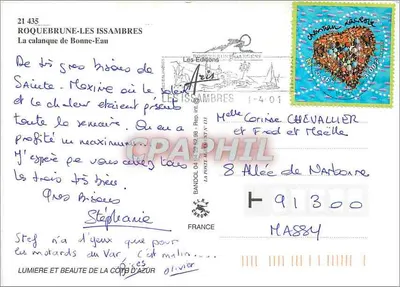 21 435
ROQUEBRUNE-LES ISSAMBRES
La calanque de Bonne-Eau
De très gros bisous de
Sainte-Maxime où le soleil
et la chaleur étaient présents
toute la semaine. On en a
profité un maximum
J'espère que vous allez tous
les trois très bien.
Gros Bisous
Stéphanie
Stef n'a d'yeux que pour
les motards du Var, c'est malin....
Bises olivier
LUMIERE ET BEAUTE DE LA COTE D'AZUR
Les Editions
Aris
BANDOL
FRANCE
LES ISSAMBRES
-4 01
CPAPHIL
christian lacroix
Melle Corinne CHEVALLIER
et Fred et Maëlle
8 Allée de Narbonne
91300
MASSY